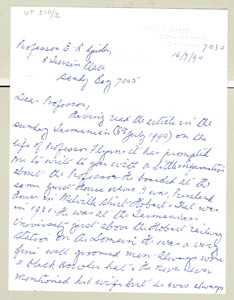 UT 210/2
7030
16/7/90
Professor E. R.
Sandy Bay 7005
Dear Professor,
Having read the article in the
Sunday Tasmanian (8th July 1990) on the
life of Professor Flynn it has prompted
me to write to you with a little information
about the Professor. He boarded at the
same guest House where I was
house in Melville Street Hobart. That was
in 1920. He was at the Tasmanian
University just above the Hobart Railway
Station on the Domain. He was a very
fine well groomed man. Always wore
a black Bowler hat. He never ever
mentioned his wife but he was always